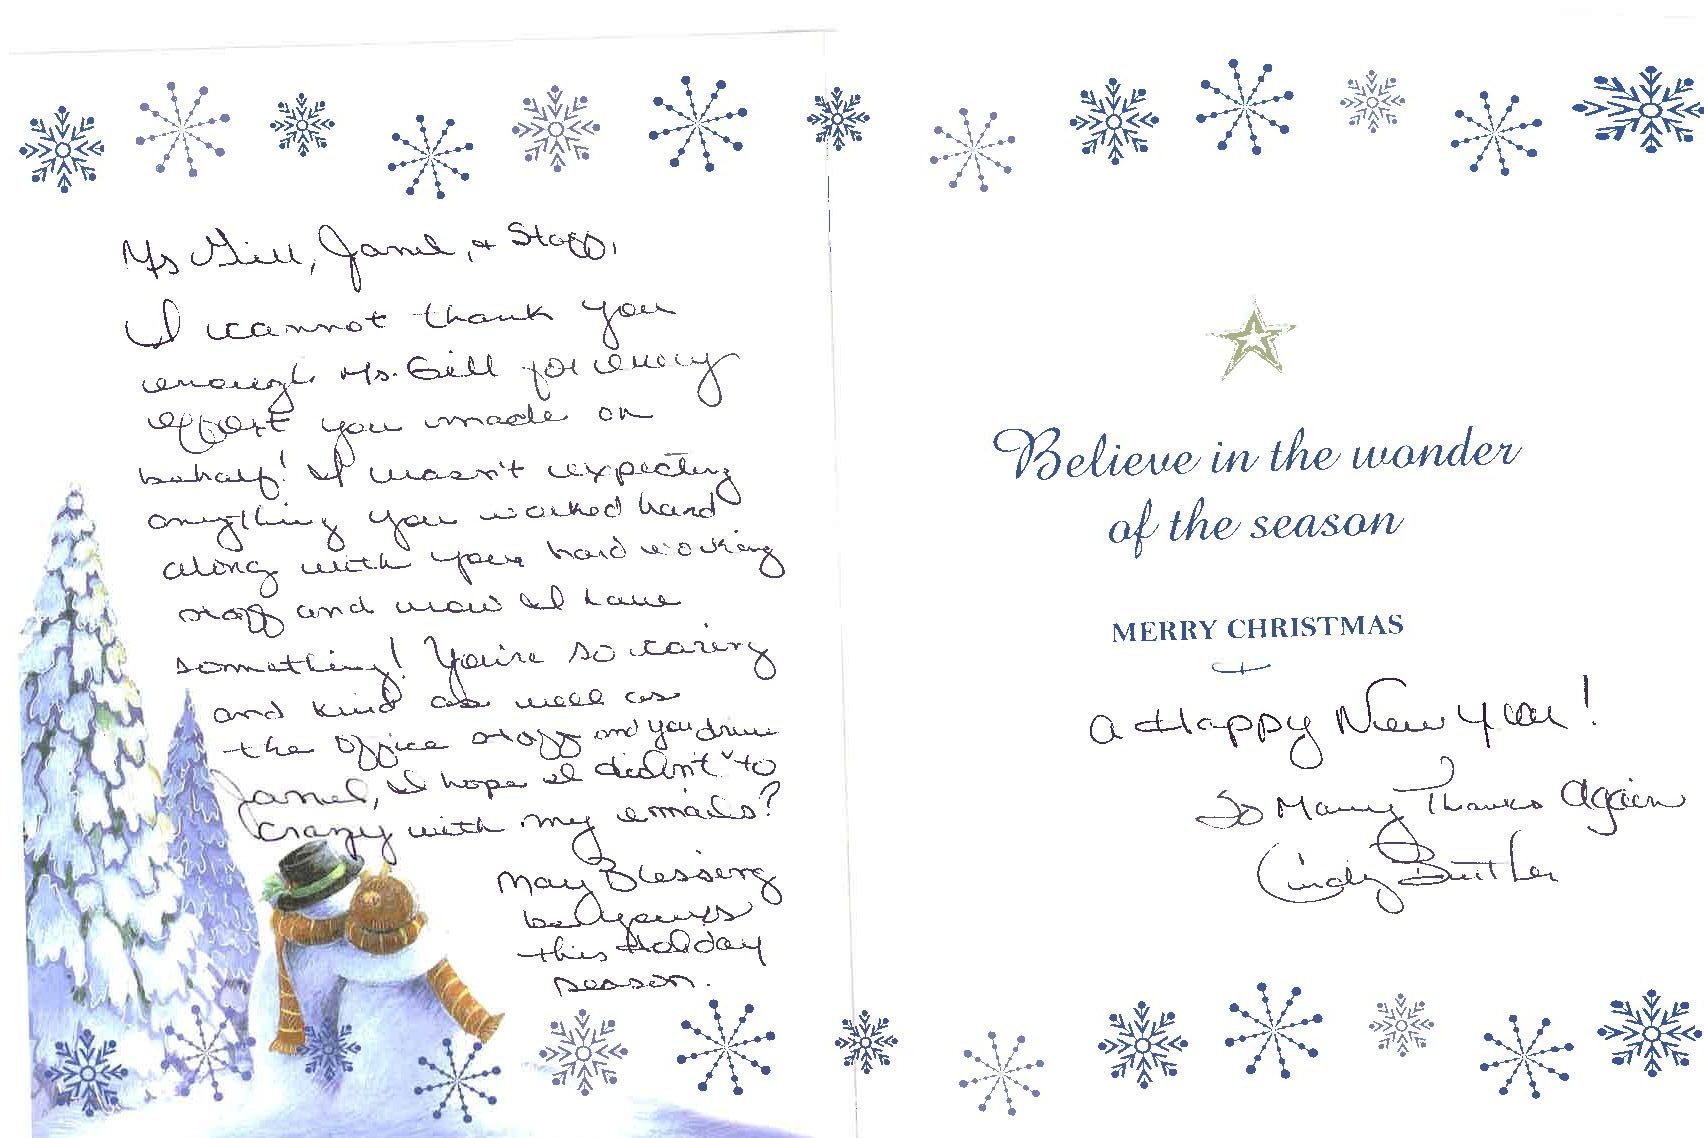 Ms Gill, Janel, + Staff,
I cannot thank you
enough Ms. Gill for every
effort you made on
behalf! I wasn't expecting
anything you worked hard
along with your hard working
staff and now I have
something! You're so caring
and kind as well as
the office staff
Janel, I hope I didn't and you drive to
crazy with my emails?
May Blessing
be yours
this Holiday
season.
Believe in the wonder
of the season
MERRY CHRISTMAS
+
a Happy New Year!
So Many Thanks Again
Cindy